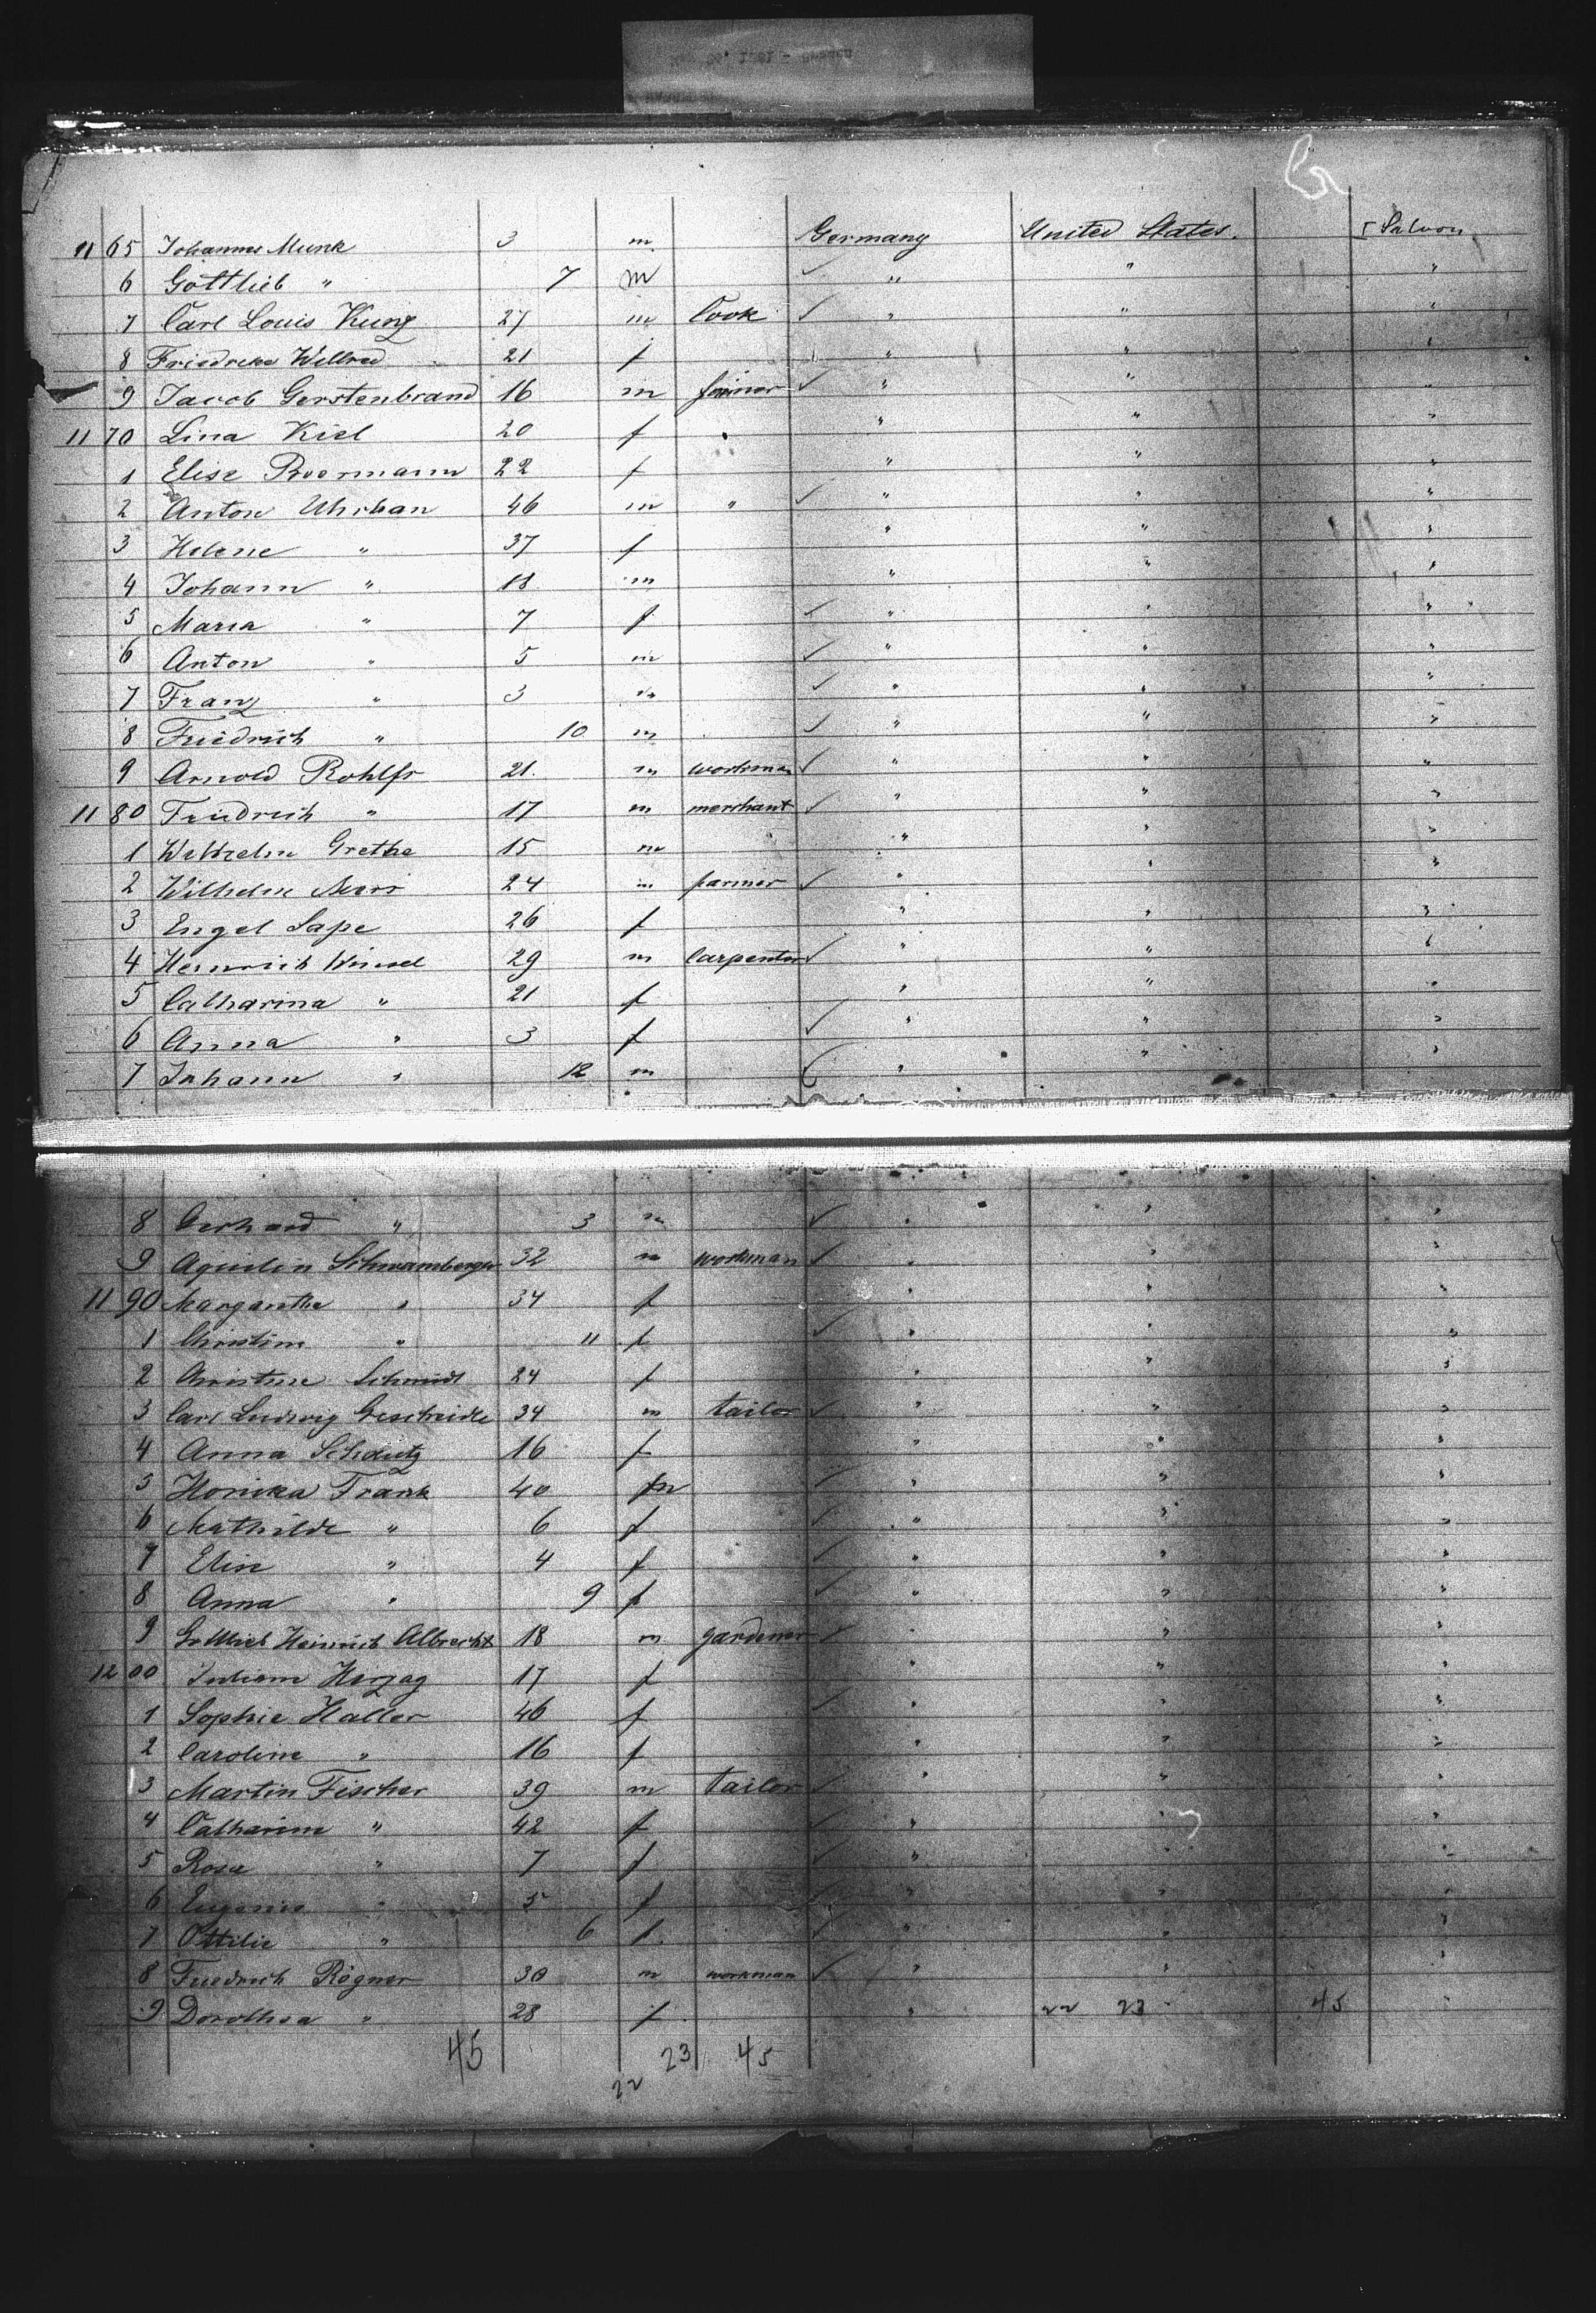 11 65 Johannes Munk 3 m Germany United States. I Saloon
6 Gottlieb " 7 m " " "
7 Carl Louis Kunz 27 m Cook " " "
8 Friedreke 21 f " " "
9 Jacob Gerstenbrand 16 m " " "
11 70 Lina Kiel 20 f " " "
1 Elise 22 f " " "
2 Anton Uhrhan 46 m " " " "
3 Helene " 37 f " " "
4 Johann " 18 m " " "
5 Maria " 7 f " " "
6 Anton " 5 m " " "
7 Franz " 3 m " " "
8 Friedrich " 10 m " " "
9 Arnold Rohlfs 21. m workman " " "
11 80 Friedrich " 17 m merchant " " "
1 Wilhelm Grethe 15 m " " "
2 Wilhelm 24 m farmer " " "
3 Engel Sape 26 f " " "
4 Heinrich Wensel 29 m Carpenter " " "
5 Catharina " 21 f " " "
6 Anna " 3 f " " "
7 Johann " 12 m " " "
8 Gerhard " 3 m " " "
9 Aquilin Schwamberger 32 m workman " " "
11 90 Margarethe " 34 f " "
1 Christine " 11 f " " "
2 Christine Schmidt 24 f " " "
3 Carl Ludwig Gescheidle 34 m tailor " " "
4 Anna Schautz 16 f " " "
5 Frank 40 m " "
6 Mathilde " 6 f " " "
7 Elise " 4 f " " "
8 Anna " 9 f " " "
9 Gottlieb Heinrich Albrecht 18 m gardener " " "
12 00 Herzog 17 f " " "
1 Sophie Haller 46 f " " "
2 Caroline " 16 f " " "
3 Martin Fischer 39 m tailor " " "
4 Catharine " 42 f " " "
5 Rosa " 7 f " " "
6 Eugenie " 5 f " " "
7 Ottilie " 6 f " " "
8 Friedrich Rögner 30 m workman " " "
9 Dorothea " 28 f " 22 23 45 "
45 23 45
22